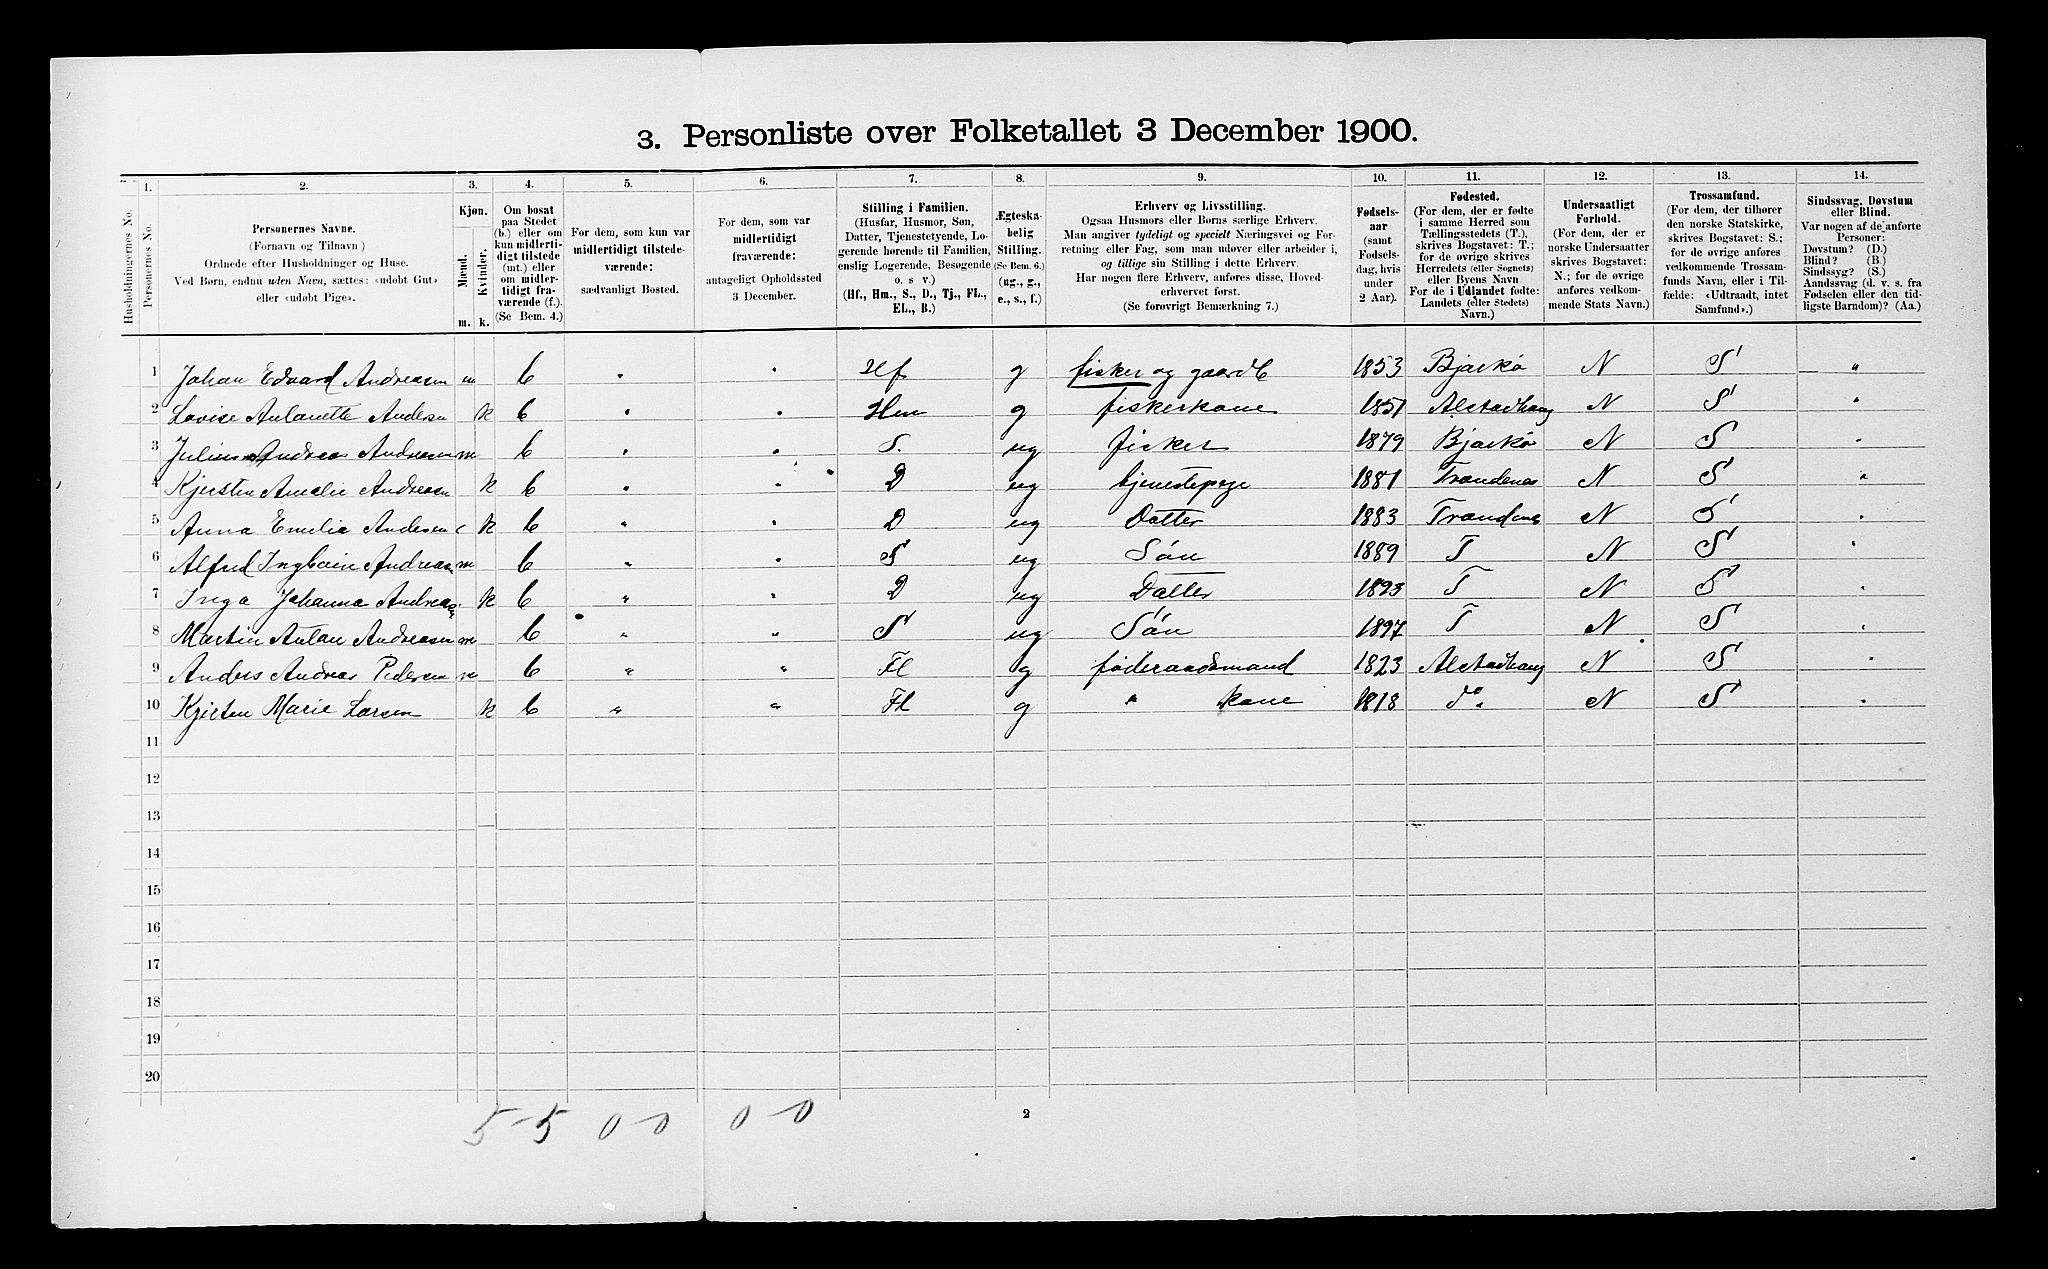 3. Personliste over Folketallet 3 December 1900.
1. 2. 3. 4. 5. 6. 7. 8. 9. 10. 11. 12. 13. 14.
Husholdningernes No.
Personernes No.
Personernes Navne.
(Fornavn og Tilnavn)
Ordnede efter Husholdninger og Huse.
Ved Børn, endnu uden Navn, sættes: «udøbt Gut»
eller «udøbt Pige».
Kjøn.
Mænd.
Kvinder.
m. k.
Om bosat
paa Stedet
(b.) eller om
kun midlerti-
digt tilstede
(mt.) eller
om midler-
tidigt fra-
værende (f.).
(Se Bem. 4.)
For dem, som kun var
midlertidigt tilstede-
værende:
sædvanligt Bosted.
For dem, som var
midlertidigt
fraværende:
antageligt Opholdssted
3 December.
Stilling i Familien.
(Husfar, Husmor, Søn,
Datter, Tjenestetyende, Lo-
gerende hørende til Familien,
enslig Logerende, Besøgende
o. s v.)
(Hf., Hm., S., D., Tj., FL.,
EL., B.)
Ægteska-
belig
Stilling.
(Se Bem. 6.)
(ug., g.,
e., s., f.)
Erhverv og Livsstilling.
Ogsaa Husmors eller Børns særlige Erhverv.
Man angiver tydeligt og specielt Næringsvei og For-
retning eller Fag, som man udøver eller arbeider i,
og tillige sin Stilling i dette Erhverv.
Har nogen flere Erhverv, anføres disse, Hoved-
erhvervet først.
(Se forøvrigt Bemærkning 7.)
Fødsels-
aar
(samt
Fødsels-
dag, hvis
under
2 Aar).
Fødested.
(For dem, der er fødte
i samme Herred som
Tællingsstedets (T.),
skrives Bogstavet: T.;
for de øvrige skrives
Herredets (eller Sognets)
eller Byens Navn
For de i Udlandet fødte:
Landets (eller Stedets)
Navn.)
Undersaatligt
Forhold.
(For dem, der er
norske Undersaatter
skrives Bogstavet:
N.; for de øvrige
anføres vedkom-
mende Stats Navn.)
Trossamfund.
(For dem, der tilhører
den norske Statskirke,
skrives Bogstavet: S.;
for de øvrige anføres
vedkommende Trossam-
funds Navn, eller i Til-
fælde: «Udtraadt, intet
Samfund».)
Sindssvag, Døvstum
eller Blind.
Var nogen af de anførte
Personer:
Døvstum? (D.)
Blind? (B.)
Sindssyg? (S.)
Aandssvag (d. v. s. fra
Fødselen eller den tid-
ligste Barndom)? (Aa.)
1 Johan Edvard Andreasen m b " " Hf g fisker og gaardb 1853 Bjarkö N S "
2 Lovise Antonette Andersn k b " " Hm g fiskerkone 1851 Alstadhaug N S "
3 Julius Andreas Andreasen m b " " S. ug fisker 1879 Bjarkö N S "
4 Kjersten Amalie Andreasn k b " " D ug tjenestepige 1881 Trondenes N S "
5 Anna Emilia Andersen k b " " D ug Datter 1883 Trondenes N S "
6 Alfred Ingboin Andreasen m b " " S ug Sön 1889 T N S "
7 Inga Johanna Andreasen k b " " D ug Datter 1893 T N S "
8 Martin Antan Andreasen m b " " S ug Sön 1897 T N S "
9 Anders Andreas Pedersen m b " " Fl g föderaadsmand 1823 Alstadhaug N S "
10 Kjersten Marie Larsen k b " " Fl g " kone 1818 do. N S "
11
12
13
14
15
16
17
18
19
20
5-5 0-0 0-0
2